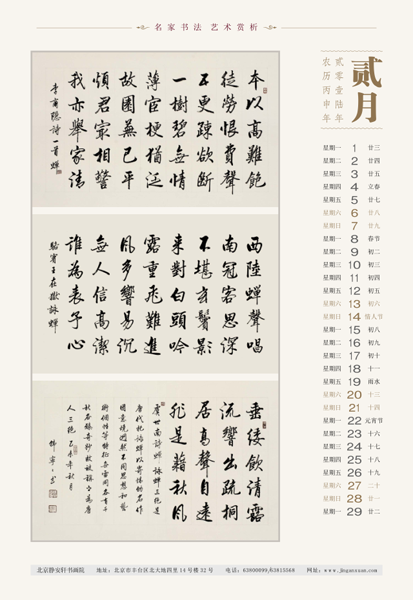 名家书法 艺术赏析
贰月
贰零壹陆年
农历丙申年
本以高難飽
徒勞恨費聲
五更疎欲斷
一樹碧無情
薄宦梗猶泛
故園蕪已平
煩君最相警
我亦舉家清
李商隱詩一首蟬
西陸蟬聲唱
南冠客思深
不堪玄鬢影
來對白頭吟
露重飛難進
風多響易沉
無人信高潔
誰為表予心
駱賓王在獄詠蟬
垂緌飲清露
流響出疏桐
居高聲自遠
非是藉秋風
虞世南詩 詠蟬三絶是
星期一 1 廿三
星期二 2 廿四
星期三 3 廿五
星期四 4 立春
星期五 5 廿七
星期六 6 廿八
星期日 7 廿九
星期一 8 春节
星期二 9 初二
星期三 10 初三
星期四 11 初四
星期五 12 初五
星期六 13 初六
星期日 14 情人节
星期一 15 初八
星期二 16 初九
星期三 17 初十
星期四 18 十一
星期五 19 雨水
星期六 20 十三
星期日 21 十四
星期一 22 元宵节
星期二 23 十六
星期三 24 十七
星期四 25 十八
星期五 26 十九
星期六 27 二十
星期日 28 廿一
星期一 29 廿二
北京静安轩书画院 地址：北京市丰台区北大地四里14号楼32号 电话：63800099/63815568 网址：www.jinganxuan.com